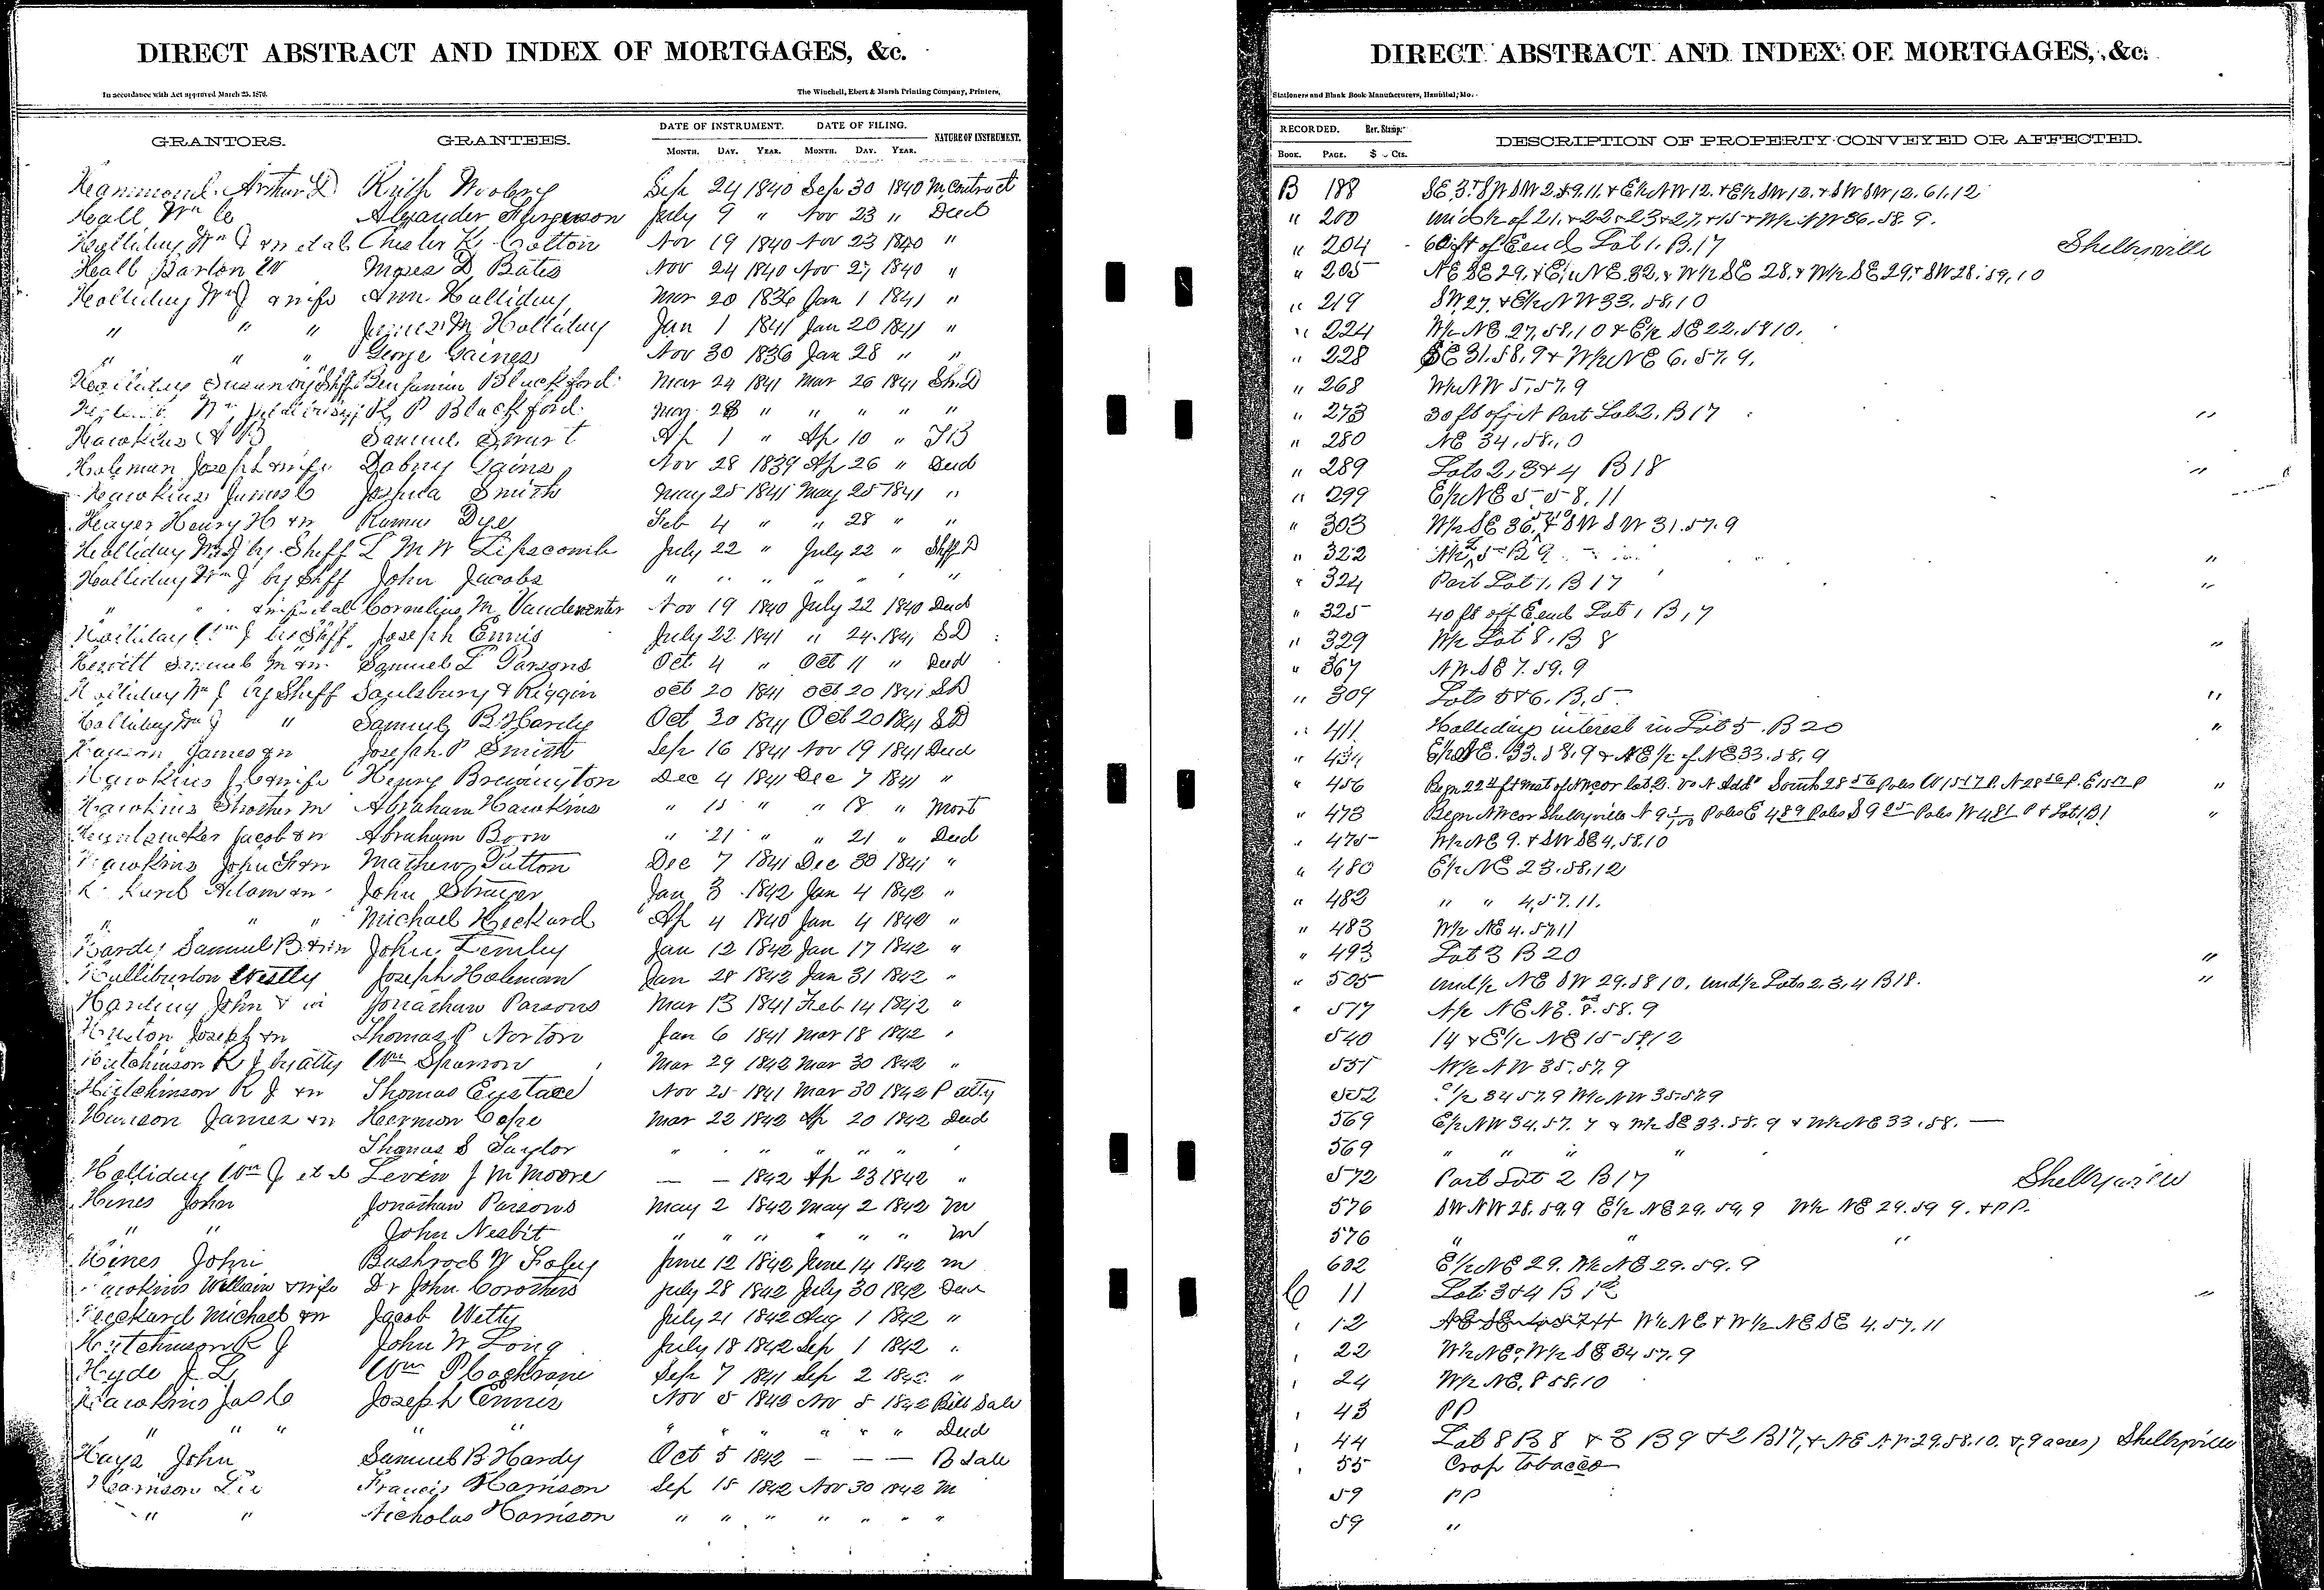 DIRECT ABSTRACT AND INDEX OF MORTGAGES, &c.
In accordance with Act approved March 25, 1870.
The Winchell, Ebert & Marsh Printing Company, Printers,
GRANTORS. GRANTEES. DATE OF INSTRUMENT. DATE OF FILING. NATURE OF INSTRUMENT.
MONTH. DAY. YEAR. MONTH. DAY. YEAR.
Hammond Arthur D Sep 24 1840 Sep 30 1840 M Contract
Hall Wm C Alexander Ferguson July 9 " Nov 23 " Deed
Halliday Wm J & w et al Chester K Colton Nov 19 1840 Nov 23 1840 "
Hall Barton W Moses D Bates Nov 24 1840 Nov 27 1840 "
Halliday Wm J & wife Ann Halliday Mar 20 1836 Jan 1 1841 "
" " " James M Halliday Jan 1 1841 Jan 20 1841 "
" " " George Gaines Nov 30 1836 Jan 28 " "
Halliday by Shff Benjamin Blackford Mar 24 1841 Mar 26 1841 Sh. D
P Blackford May 28 " " " " "
Hawkins Samuel Smart Ap 1 " Ap 10 "
Holeman Joseph & wife Dabny Gains Nov 28 1839 Ap 26 " Deed
Hawkins James C Joshua Smith May 25 1841 May 25 1841 "
Hayer Henry H & w Dye Feb 4 " " 28 " "
Halliday Wm J by Shiff L M W Lipscomb July 22 " July 22 " Shff D
Halliday Wm J by Shff John Jacobs " " " " " " "
" " & wife et al Cornelius M Vandeventer Nov 19 1840 July 22 1840 Deed
Halliday Wm J by Shff Joseph Ennis July 22 1841 " 24 1841 SD
Hewitt Samuel M & w Samuel L Parsons Oct 4 " Oct 11 " Deed
Halliday Wm J by Shff Saulsbury & Riggin Oct 20 1841 Oct 20 1841 SD
Halliday Wm J " Samuel B Hardy Oct 20 1841 Oct 20 1841 SD
James & w Joseph P Smith Sep 16 1841 Nov 19 1841 Deed
Hawkins J C & wife Henry Brewington Dec 4 1841 Dec 7 1841 "
Hawkins Strother M Abraham Hawkins " 18 " " 18 " Mort
Jacob & w Abraham Born " 21 " " 21 " Deed
Hawkins John S & w Mathew Patton Dec 7 1841 Dec 30 1841 "
Adam & w John Strayer Jan 3 1842 Jan 4 1842 "
" " " Michael Heckard Ap 4 1840 Jan 4 1842 "
Hardy Samuel B & w John Lemley Jan 12 1842 Jan 17 1842 "
Halliburton Westly Joseph Holeman Jan 28 1842 Jan 31 1842 "
Harding John & w Jonathan Parsons Mar 13 1841 Feb 14 1842 "
Huston Joseph & w Thomas P Norton Jan 6 1841 Mar 18 1842 "
Hutchinson R J by atty Wm Sparrow Mar 29 1842 Mar 30 1842 "
Hutchinson R J & w Thomas Eustace Nov 25 1841 Mar 30 1842 P atty
Hanson James & w Hermon Cope Mar 22 1842 Ap 20 1842 Deed
" Thomas S Taylor " " " " " "
Halliday Wm J et al Levin J M Moore — — 1842 Ap 23 1842 "
Hines John Jonathan Parsons May 2 1842 May 2 1842 M
" " John Nesbit " " " " " " M
Hines John Bushrod W Foley June 12 1842 June 14 1842 M
Hawkins William & wife Dr John Corothers July 28 1842 July 30 1842 Deed
Heckard Michael & w Jacob Witty July 21 1842 Aug 1 1842 "
Hutchinson R J John W Long July 18 1842 Sep 1 1842 "
Hyde J L Wm P Cochrane Sep 7 1841 Sep 2 1842 "
Hawkins Jas C Joseph Ennis Nov 5 1842 Nov 5 1842 Bill Sale
" " " " " " " " " Deed
Hays John Samuel B Hardy Oct 5 1842 — — — B Sale
Harrison Francis Harrison Sep 15 1842 Nov 30 1842 M
" " Nicholas Harrison " " " " " " "
DIRECT ABSTRACT AND INDEX OF MORTGAGES, &c.
Stationers and Blank Book Manufacturers, Hannibal, Mo.
RECORDED. Rev. Stamp. DESCRIPTION OF PROPERTY CONVEYED OR AFFECTED.
BOOK. PAGE. $ Cts.
B 188 SE 3. & SW SW 2. & 9.11. & E½ NW 12. & E½ SW 12. & SW SW 12. 61.12
" 200 und ½ of 21. & 22 & 23 & 27. & 15 & W½ NW 36. 58. 9.
" 204 60 ft of E end Lot 1. B. 17 Shelbyville
" 205 NE SE 29. & E½ NE 32. & W½ SE 28. & W½ SE 29. & SW 28. 59.10
" 219 SW 27. & E½ NW 33. 58.10
" 224 W½ NE 27. 58.10 & E½ SE 22. 58 10.
" 228 SE 31. 58. 9 & W½ NE 6. 57. 9.
" 268 W½ NW 5. 57. 9
" 273 30 ft off N Part Lot 2. B 17 "
" 280 NE 34. 58.
" 289 Lots 2, 3 & 4 B 18 "
" 299 E½ NE 5 58. 11
" 303 W½ SE 36. & SW SW 31. 57. 9
" 322 B 9 "
" 324 Part Lot 1. B 17 "
" 325 40 ft off E end Lot 1 B 17
" 329 W½ Lot 8. B 8 "
" 367 NW SE 7. 59. 9
" 309 Lots 5 & 6. B. 5 "
" 411 Hallidays interest in Lot 5. B 20 "
" 434 E½ SE. 33. 58. 9 & NE ½ of NE 33. 58. 9
" 456 "
" 473 Begn NW cor Shelbyville "
" 475 W½ NE 9. & SW SE 4. 58.10
" 480 E½ NE 23. 58. 12
" 482 " " 4. 57. 11.
" 483 W½ NE 4. 57 11
" 493 Lot 3 B 20 "
" 505 und ½ NE SW 29. 58 10. und ½ Lots 2. 3. 4 B 18. "
" 517 N½ NE NE. 8. 58. 9
540 14 & E½ NE 15 58 12
551 W½ NW 35. 57. 9
552 ½ 34 57.9 W½ NW 35. 57 9
569 E½ NW 34. 57. 7 & W½ SE 33. 58. 9 & W½ NE 33. 58. —
569 " " " "
572 Part Lot 2 B 17 Shelbyville
576 SW NW 28. 59.9 E½ NE 29. 59.9 W½ NE 29. 59 9. & PP.
576 " " "
602 E½ NE 29. W½ NE 29. 59. 9
C 11 Lot 3 & 4 B 12 "
" 12 W½ NE & W½ NE SE 4. 57. 11
" 22 W½ NE, W½ SE 34 57. 9
" 24 W½ NE. 8 58.10
" 43 PP
" 44 Lot 8 B 8 & 3 B 9 & 2 B 17, & NE NW 29. 58. 10. & 9 acres) Shelbyville
" 55 Crop Tobacco
59 PP
59 "